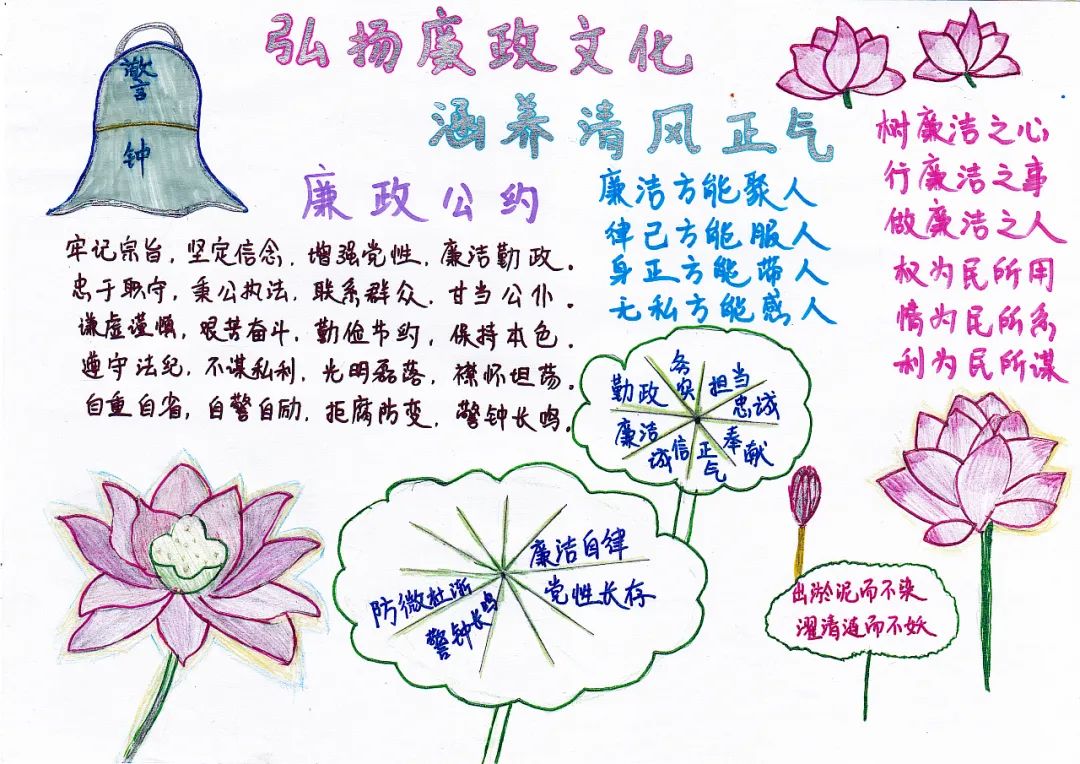 弘扬廉政文化
涵养清风正气
警
钟
廉政公约
牢记宗旨，坚定信念，增强党性，廉洁勤政。
忠于职守，秉公执法，联系群众，甘当公仆。
谦虚谨慎，艰苦奋斗，勤俭节约，保持本色。
遵守法纪，不谋私利，光明磊落，襟怀坦荡。
自重自省，自警自励，拒腐防变，警钟长鸣。
廉洁方能聚人
律己方能服人
身正方能带人
无私方能感人
树廉洁之心
行廉洁之事
做廉洁之人
权为民所用
情为民所系
利为民所谋
勤政
务实
担当
忠诚
奉献
正气
诚信
廉洁
廉洁自律
党性长存
防微杜渐
警钟长鸣
出淤泥而不染
濯清涟而不妖